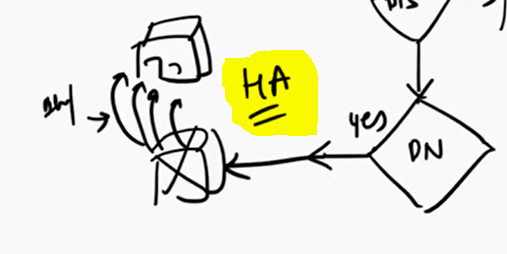 DIS
HA
yes
DN